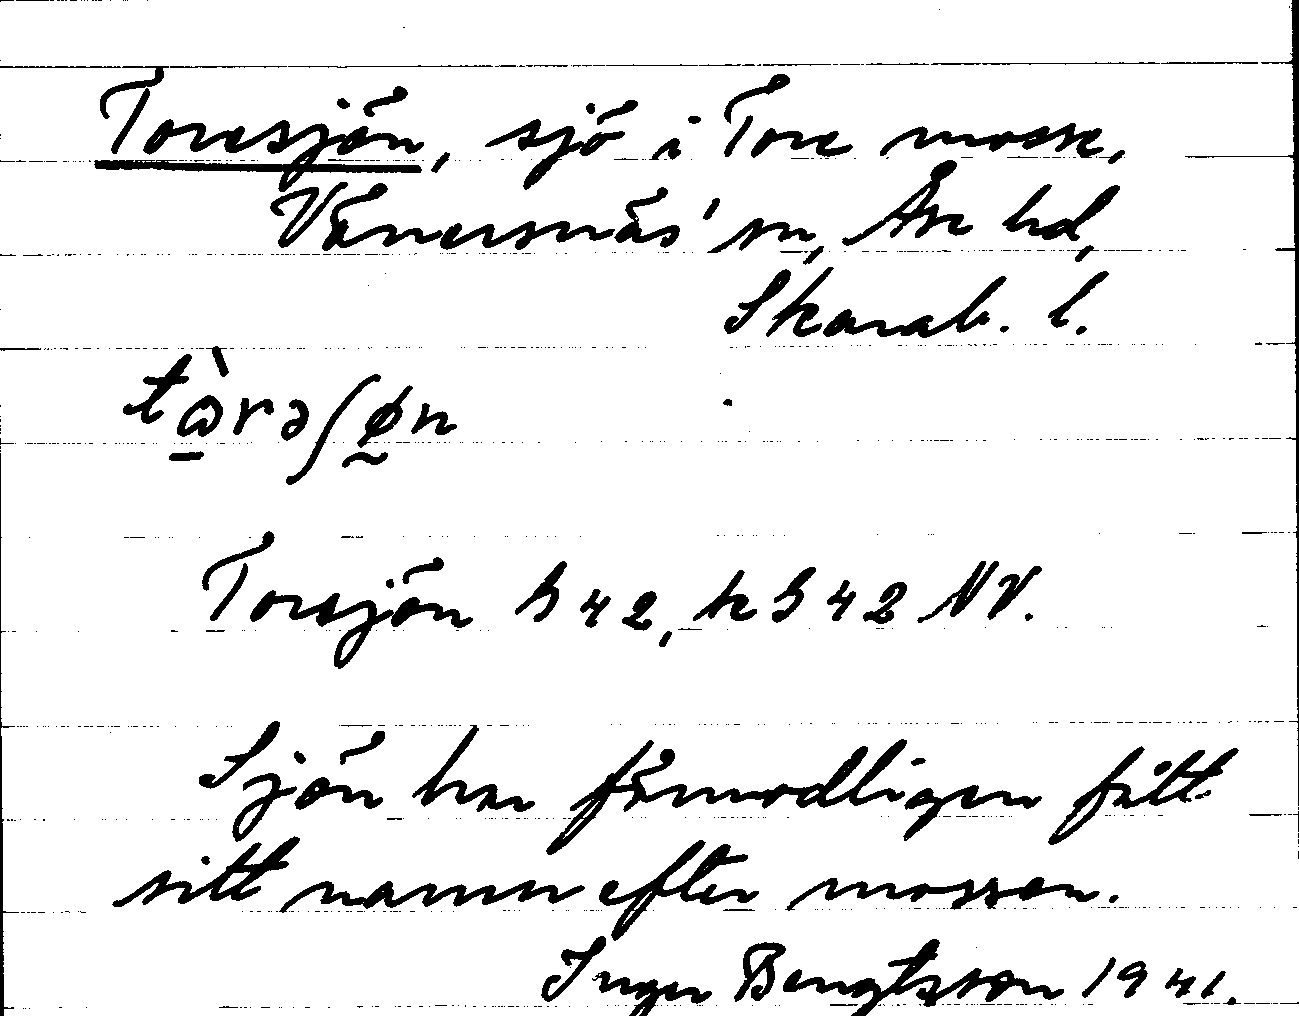 Toresjön, sjö i Tore mosse,
Vänersnäs' sn, Åse hd,
Skarab. l.
tὼ̱rəʃø̰n
Toresjön G 42, k G 42 NV.
Sjön har förmodligen fått
sitt namn efter mossen.
Inger Bengtsson 1941.